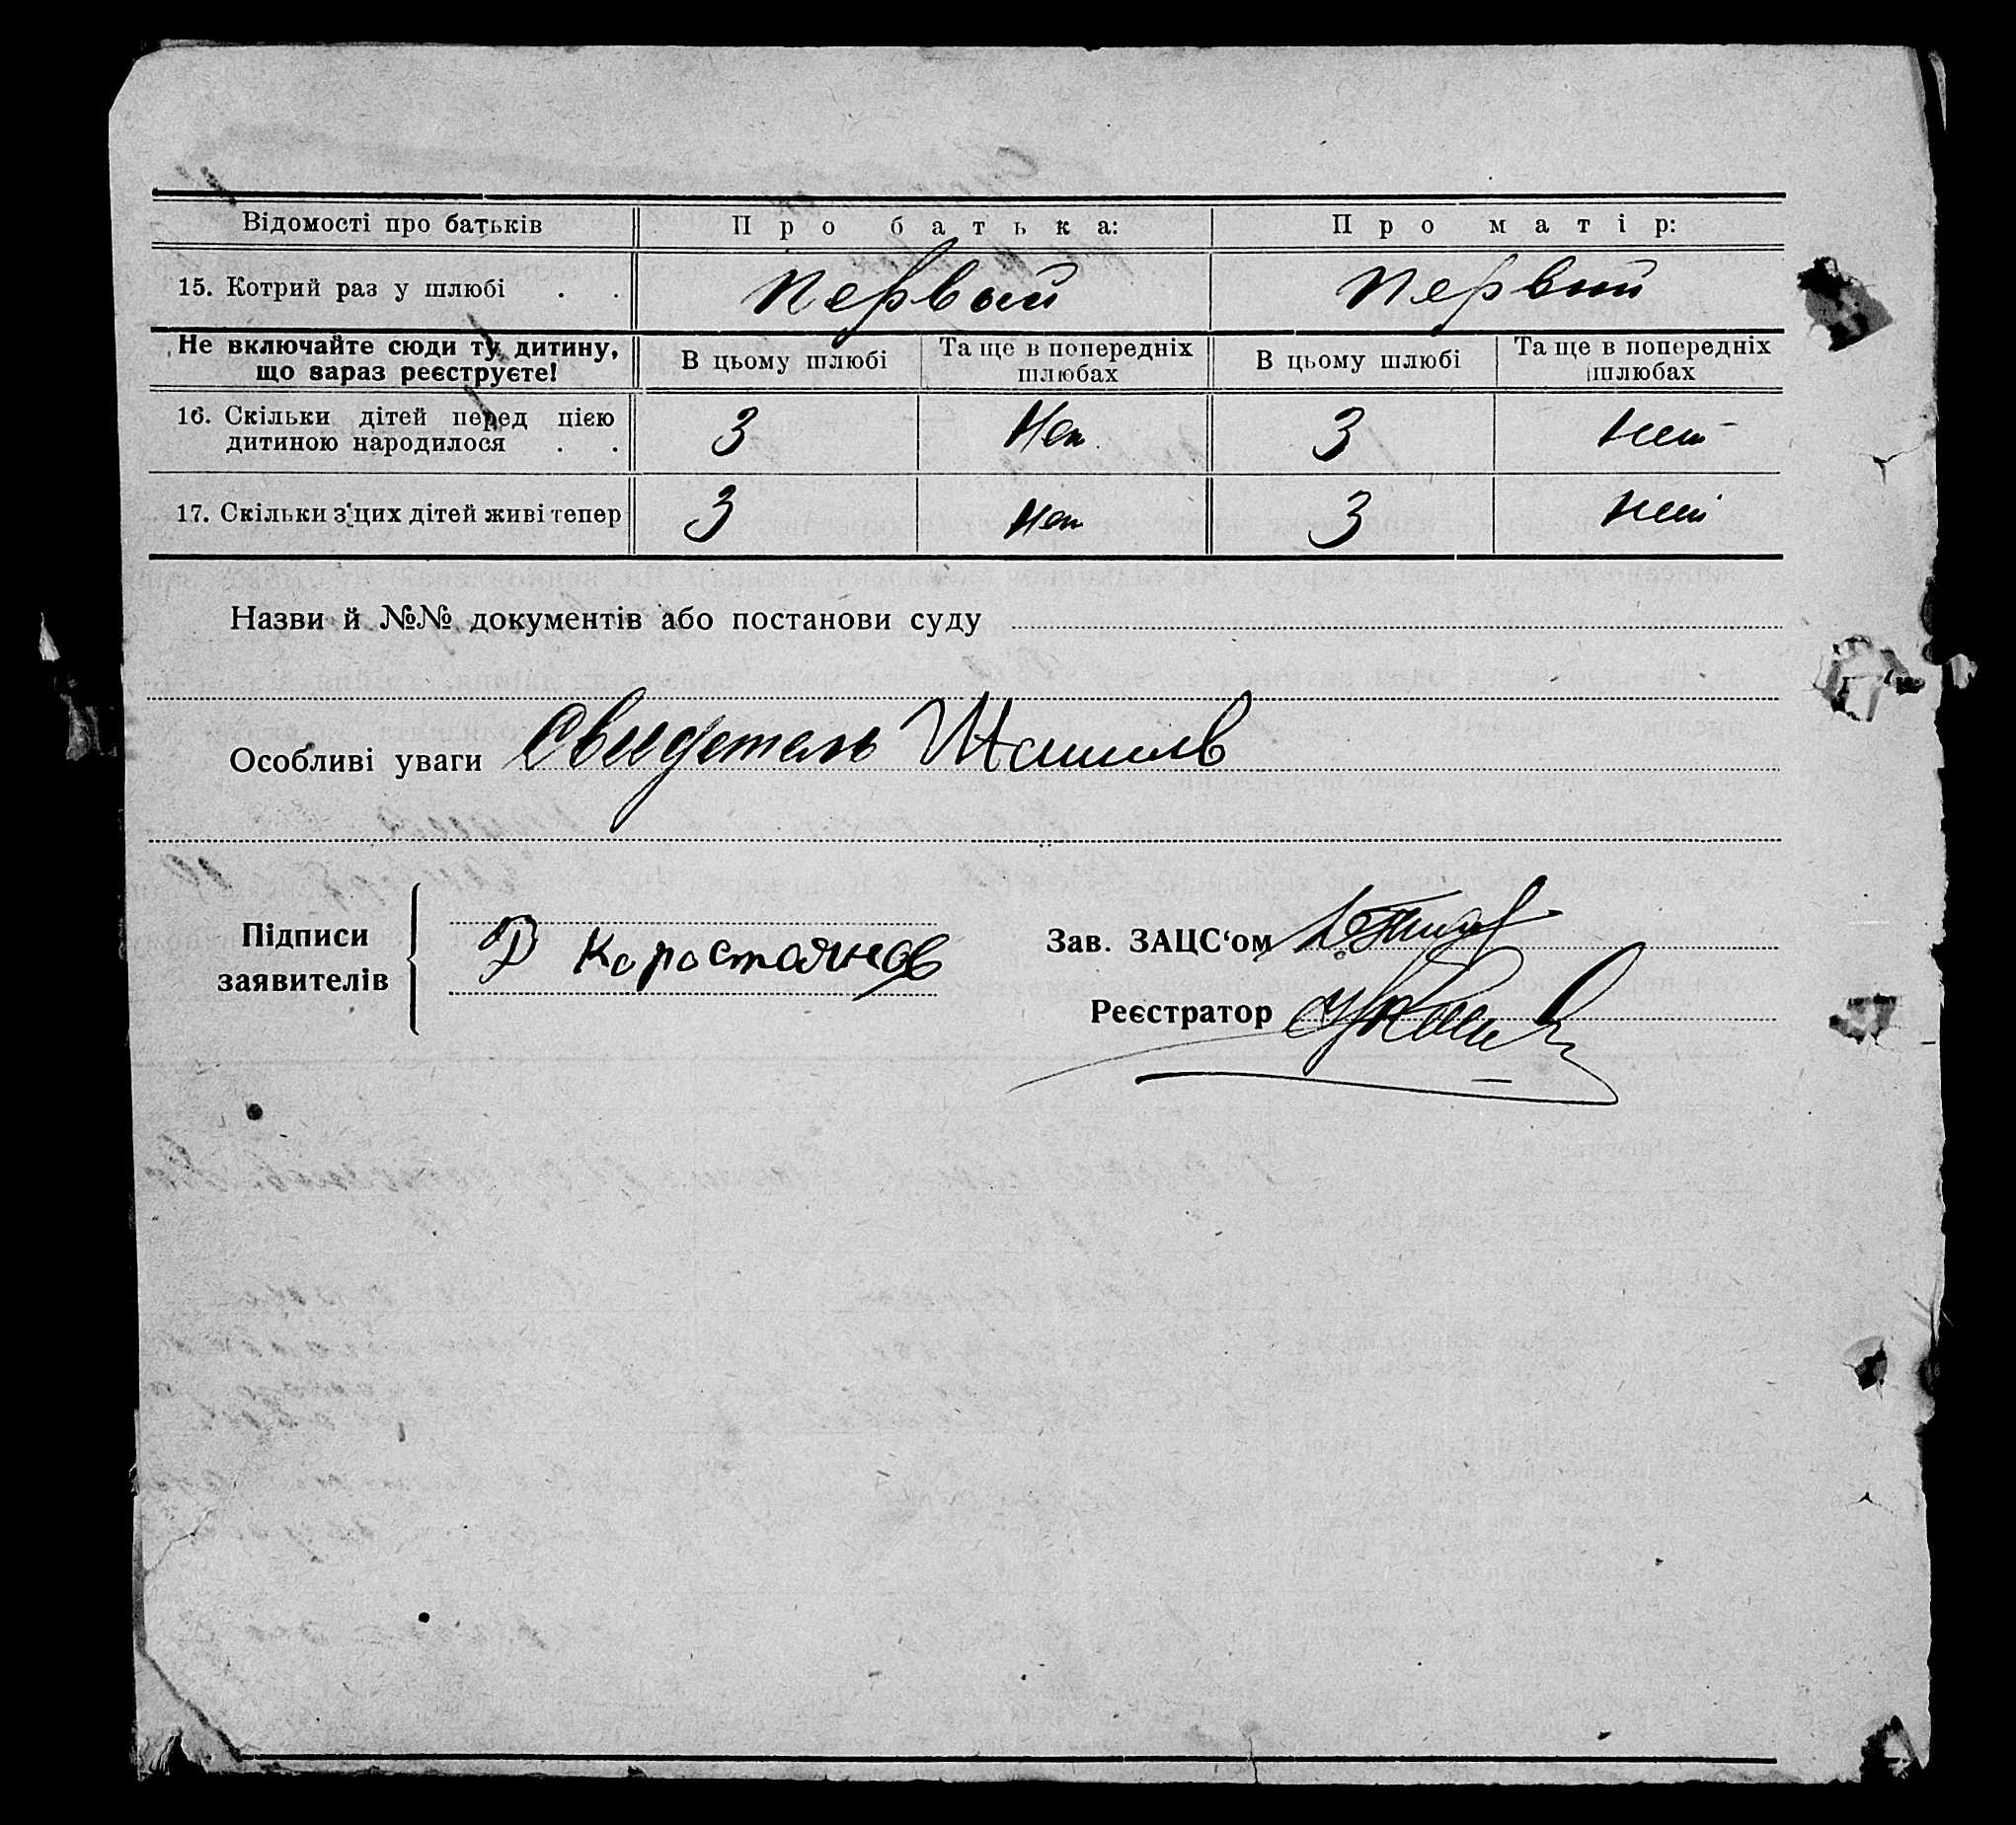 Відомості про батьків Про батька: Про матір:
15. Котрий раз у шлюбі . . Первый Первый
Не включайте сюди ту дитину,
що зараз реєструєте!
В цьому шлюбі Та ще в попередніх шлюбах В цьому шлюбі Та ще в попередніх шлюбах
16. Скільки дітей перед цією
дитиною народилося . . 3 Нет 3 нет
17. Скільки з цих дітей живі тепер 3 Нет 3 нет
Назви й №№ документів або постанови суду
Особливі уваги Свидетель
Підписи
заявителів
Коростоянов
Зав. ЗАЦС‘ом
Реєстратор